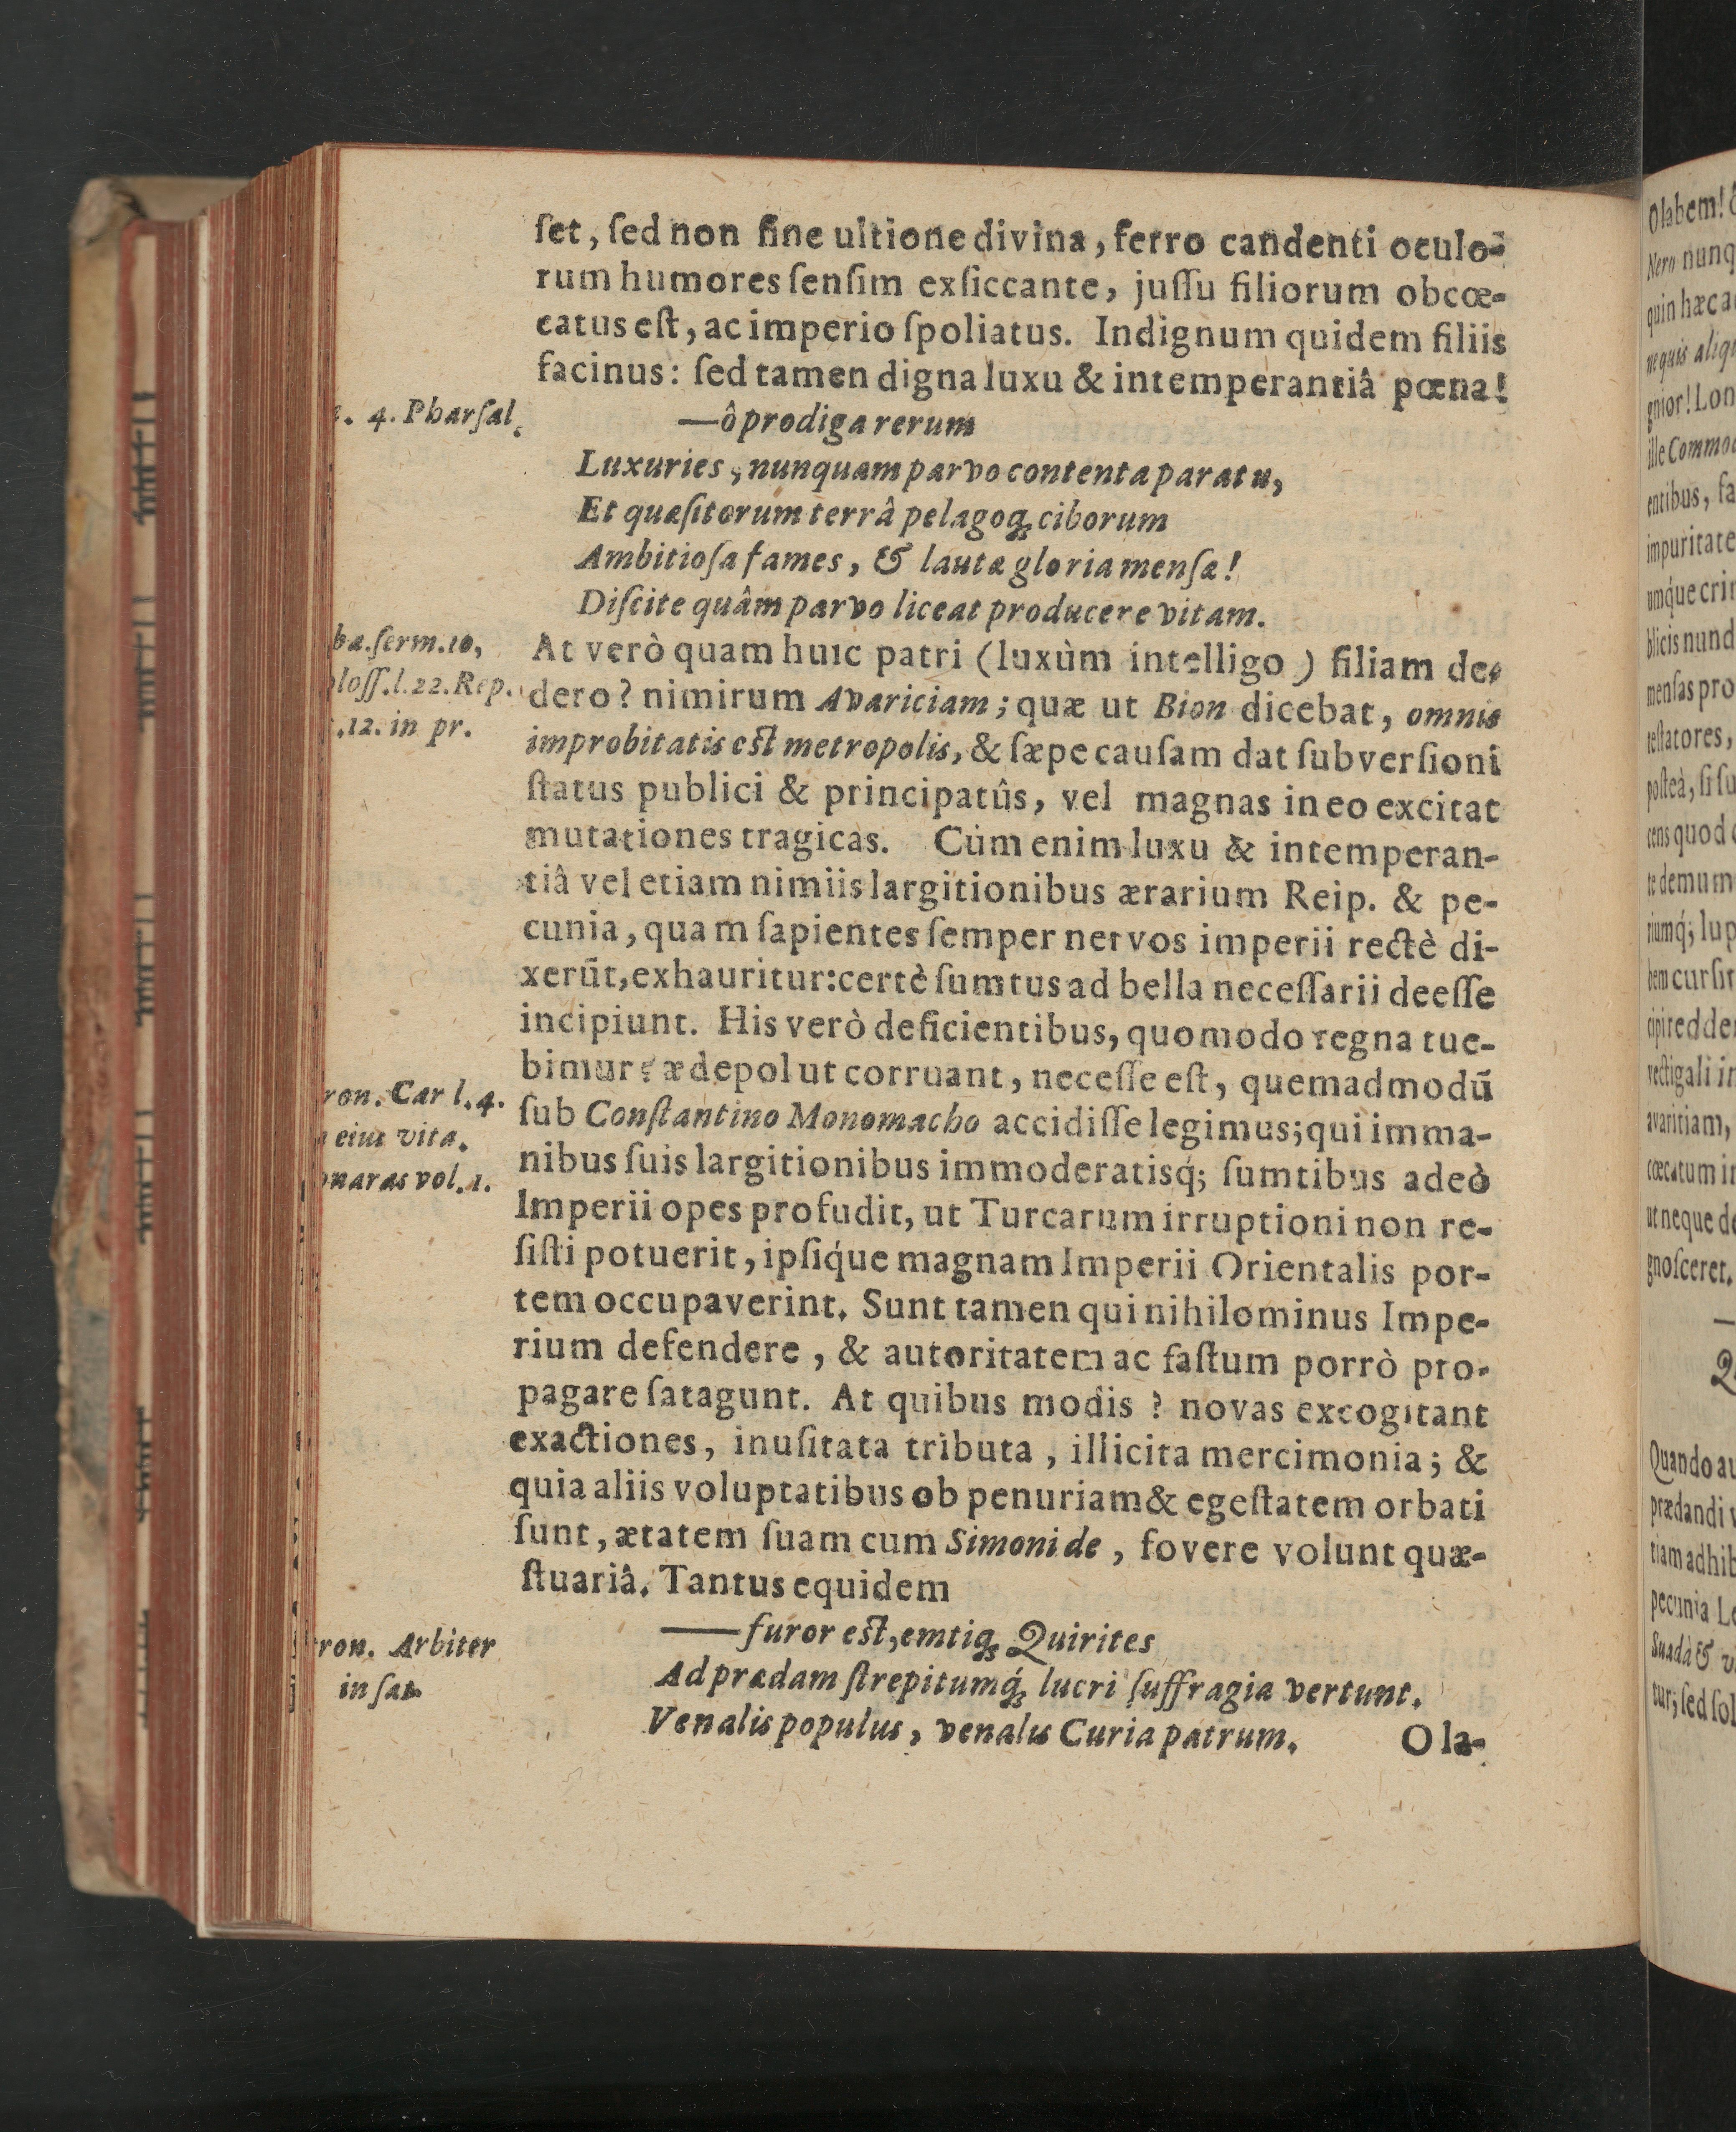 ſet, ſed non ſine ultione divina, ferro candenti oculo-
rum humores ſenſim exſiccante, juſſu filiorum obcœ-
catus eſt, ac imperio ſpoliatus. Indignum quidem filiis
facinus: ſed tamen digna luxu & intemperantiâ pœna!
4. Pharſal.
—ô prodiga rerum
Luxuries, nunquam parvo contenta paratu,
Et quæſitorum terrâ pelagoq́; ciborum
Ambitioſa fames, & lautæ gloria menſæ!
Diſcite quâm parvo liceat producere vitam.
ba. ſerm. 10,
loſſ. l. 22. Rep.
.12. in pr.
At verò quam huic patri (luxùm intelligo) filiam de-
dero? nimirum Avariciam; quæ ut Bion dicebat, omnis
improbitatis eſt metropolis, & ſæpe cauſam dat ſubverſioni
ſtatus publici & principatûs, vel magnas in eo excitat
mutationes tragicas. Cùm enim luxu & intemperan-
tiâ vel etiam nimiis largitionibus ærarium Reip. & pe-
cunia, quam ſapientes ſemper nervos imperii rectè di-
xerũt, exhauritur: certè ſumtus ad bella neceſſarii deeſſe
incipiunt. His verò deficientibus, quomodo regna tue-
bimur? ædepol ut corruant, neceſſe eſt, quemadmodũ
ron. Car l. 4.
eius vita.
onaras vol. 1.
ſub Conſtantino Monomacho accidiſſe legimus; qui imma-
nibus ſuis largitionibus immoderatisq́; ſumtibus adeò
Imperii opes profudit, ut Turcarum irruptioni non re-
ſiſti potuerit, ipſiq́ue magnam Imperii Orientalis por-
tem occupaverint. Sunt tamen qui nihilominus Impe-
rium defendere, & autoritatem ac faſtum porrò pro-
pagare ſatagunt. At quibus modis? novas excogitant
exactiones, inuſitata tributa, illicita mercimonia; &
quia aliis voluptatibus ob penuriam & egeſtatem orbati
ſunt, ætatem ſuam cum Simonide, fovere volunt quæ-
ſtuariâ. Tantus equidem
ron. Arbiter
in ſat.
—furor eſt, emtiq́; Quirites
Ad prædam ſtrepitumq́; lucri ſuffragia vertunt.
Venalis populus, venalis Curia patrum.
O la-
O labem!
Nero nunq
quin hæc a
ne quis aliq
gnior! Lon
ille Commo
entibus, fa
impuritate
umq́ue cri
blicis nund
menſas pro
teſtatores,
poſteà, ſi ſu
cens quod
te demum
riumq́; lup
bem curſit
cipi redde
vectigali i
avaritiam,
cœcatum i
ut neque d
gnoſceret.
Quando au
prædandi v
tiam adhib
pecunia L
Suadà & v
tur; ſed ſol